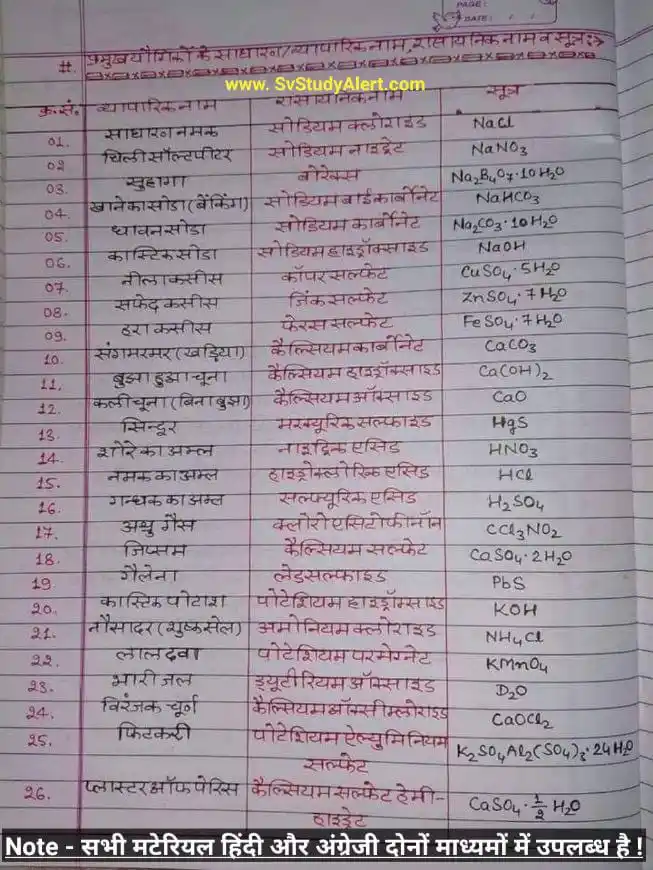 PAGE:
DATE: / /
#. प्रमुख यौगिकों के साधारण/व्यापारिक नाम, रासायनिक नाम व सूत्र :->
www. SvStudyAlert.com
क्र.सं. व्यापारिक नाम रासायनिक नाम सूत्र
01. साधारण नमक सोडियम क्लोराइड NaCl
02 चिली सॉल्टपीटर सोडियम नाइट्रेट NaNO₃
03. सुहागा बोरेक्स Na₂B₄O₇·10H₂O
04. खाने का सोडा (बेंकिंग) सोडियम बाईकार्बोनेट NaHCO₃
05. धावन सोडा सोडियम कार्बोनेट Na₂CO₃·10H₂O
06. कास्टिक सोडा सोडियम हाइड्रॉक्साइड NaOH
07. नीला कसीस कॉपर सल्फेट CuSO₄·5H₂O
08. सफेद कसीस जिंक सल्फेट ZnSO₄·7H₂O
09. हरा कसीस फेरस सल्फेट FeSO₄·7H₂O
10. संगमरमर (खड़िया) कैल्सियम कार्बोनेट CaCO₃
11. बुझा हुआ चूना कैल्सियम हाइड्रॉक्साइड Ca(OH)₂
12. कली चूना (बिना बुझा) कैल्सियम ऑक्साइड CaO
13. सिन्दूर मरक्यूरिक सल्फाइड HgS
14. शोरे का अम्ल नाइट्रिक एसिड HNO₃
15. नमक का अम्ल हाइड्रोक्लोरिक एसिड HCl
16. गन्धक का अम्ल सल्फ्यूरिक एसिड H₂SO₄
17. अश्रु गैस क्लोरो एसिटोफीनॉन CCl₃NO₂
18. जिप्सम कैल्सियम सल्फेट CaSO₄·2H₂O
19. गैलेना लेड सल्फाइड PbS
20. कास्टिक पोटाश पोटेशियम हाइड्रॉक्साइड KOH
21. नौसादर (शुष्क सेल) अमोनियम क्लोराइड NH₄Cl
22. लाल दवा पोटेशियम परमेग्नेट KMnO₄
23. भारी जल ड्यूटीरियम ऑक्साइड D₂O
24. विरंजक चूर्ण कैल्सियम ऑक्सीक्लोराइड CaOCl₂
25. फिटकरी पोटेशियम ऐल्युमिनियम K₂SO₄Al₂(SO₄)₃·24H₂O
सल्फेट
26. प्लास्टर ऑफ पेरिस कैल्सियम सल्फेट हेमी- CaSO₄·½H₂O
हाइड्रेट
Note - सभी मटेरियल हिंदी और अंग्रेजी दोनों माध्यमों में उपलब्ध है !